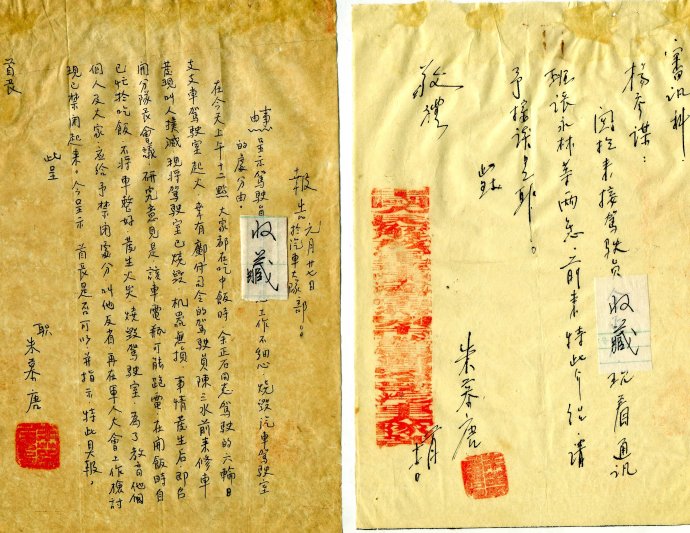 報告 元月廿七日
於汽車大隊部。
呈示駕駛員 收藏 工作不細心,燒毀汽車駕駛室
的處分由。
在今天上午十二點 大家都在吃中飯時 余正石同志駕駛的六輪
車駕駛室起火,幸有 付司令的駕駛員陳三水前來修車
發現叫人撲滅 現將駕駛室已燒毀 机器無損,事情產生后 即召
開分隊長會議,研究意見是 該車電瓶可能跑電 在開飯時自
已忙於吃飯 不將車整好 產生火災 燒毀駕駛室 為了教育他個
個人及大家 应給予禁閉處分 叫他反省 再在軍人大會上作檢討
現已禁閉起來。今呈示 首長是否可以 并指示 特此具報。
此呈
首長
職 朱慕唐
審訊科:
楊參謀:
來接駕駛員 收藏 看通訊
班張永林等兩 前來特此介紹,請
予
此致
敬禮
朱慕唐